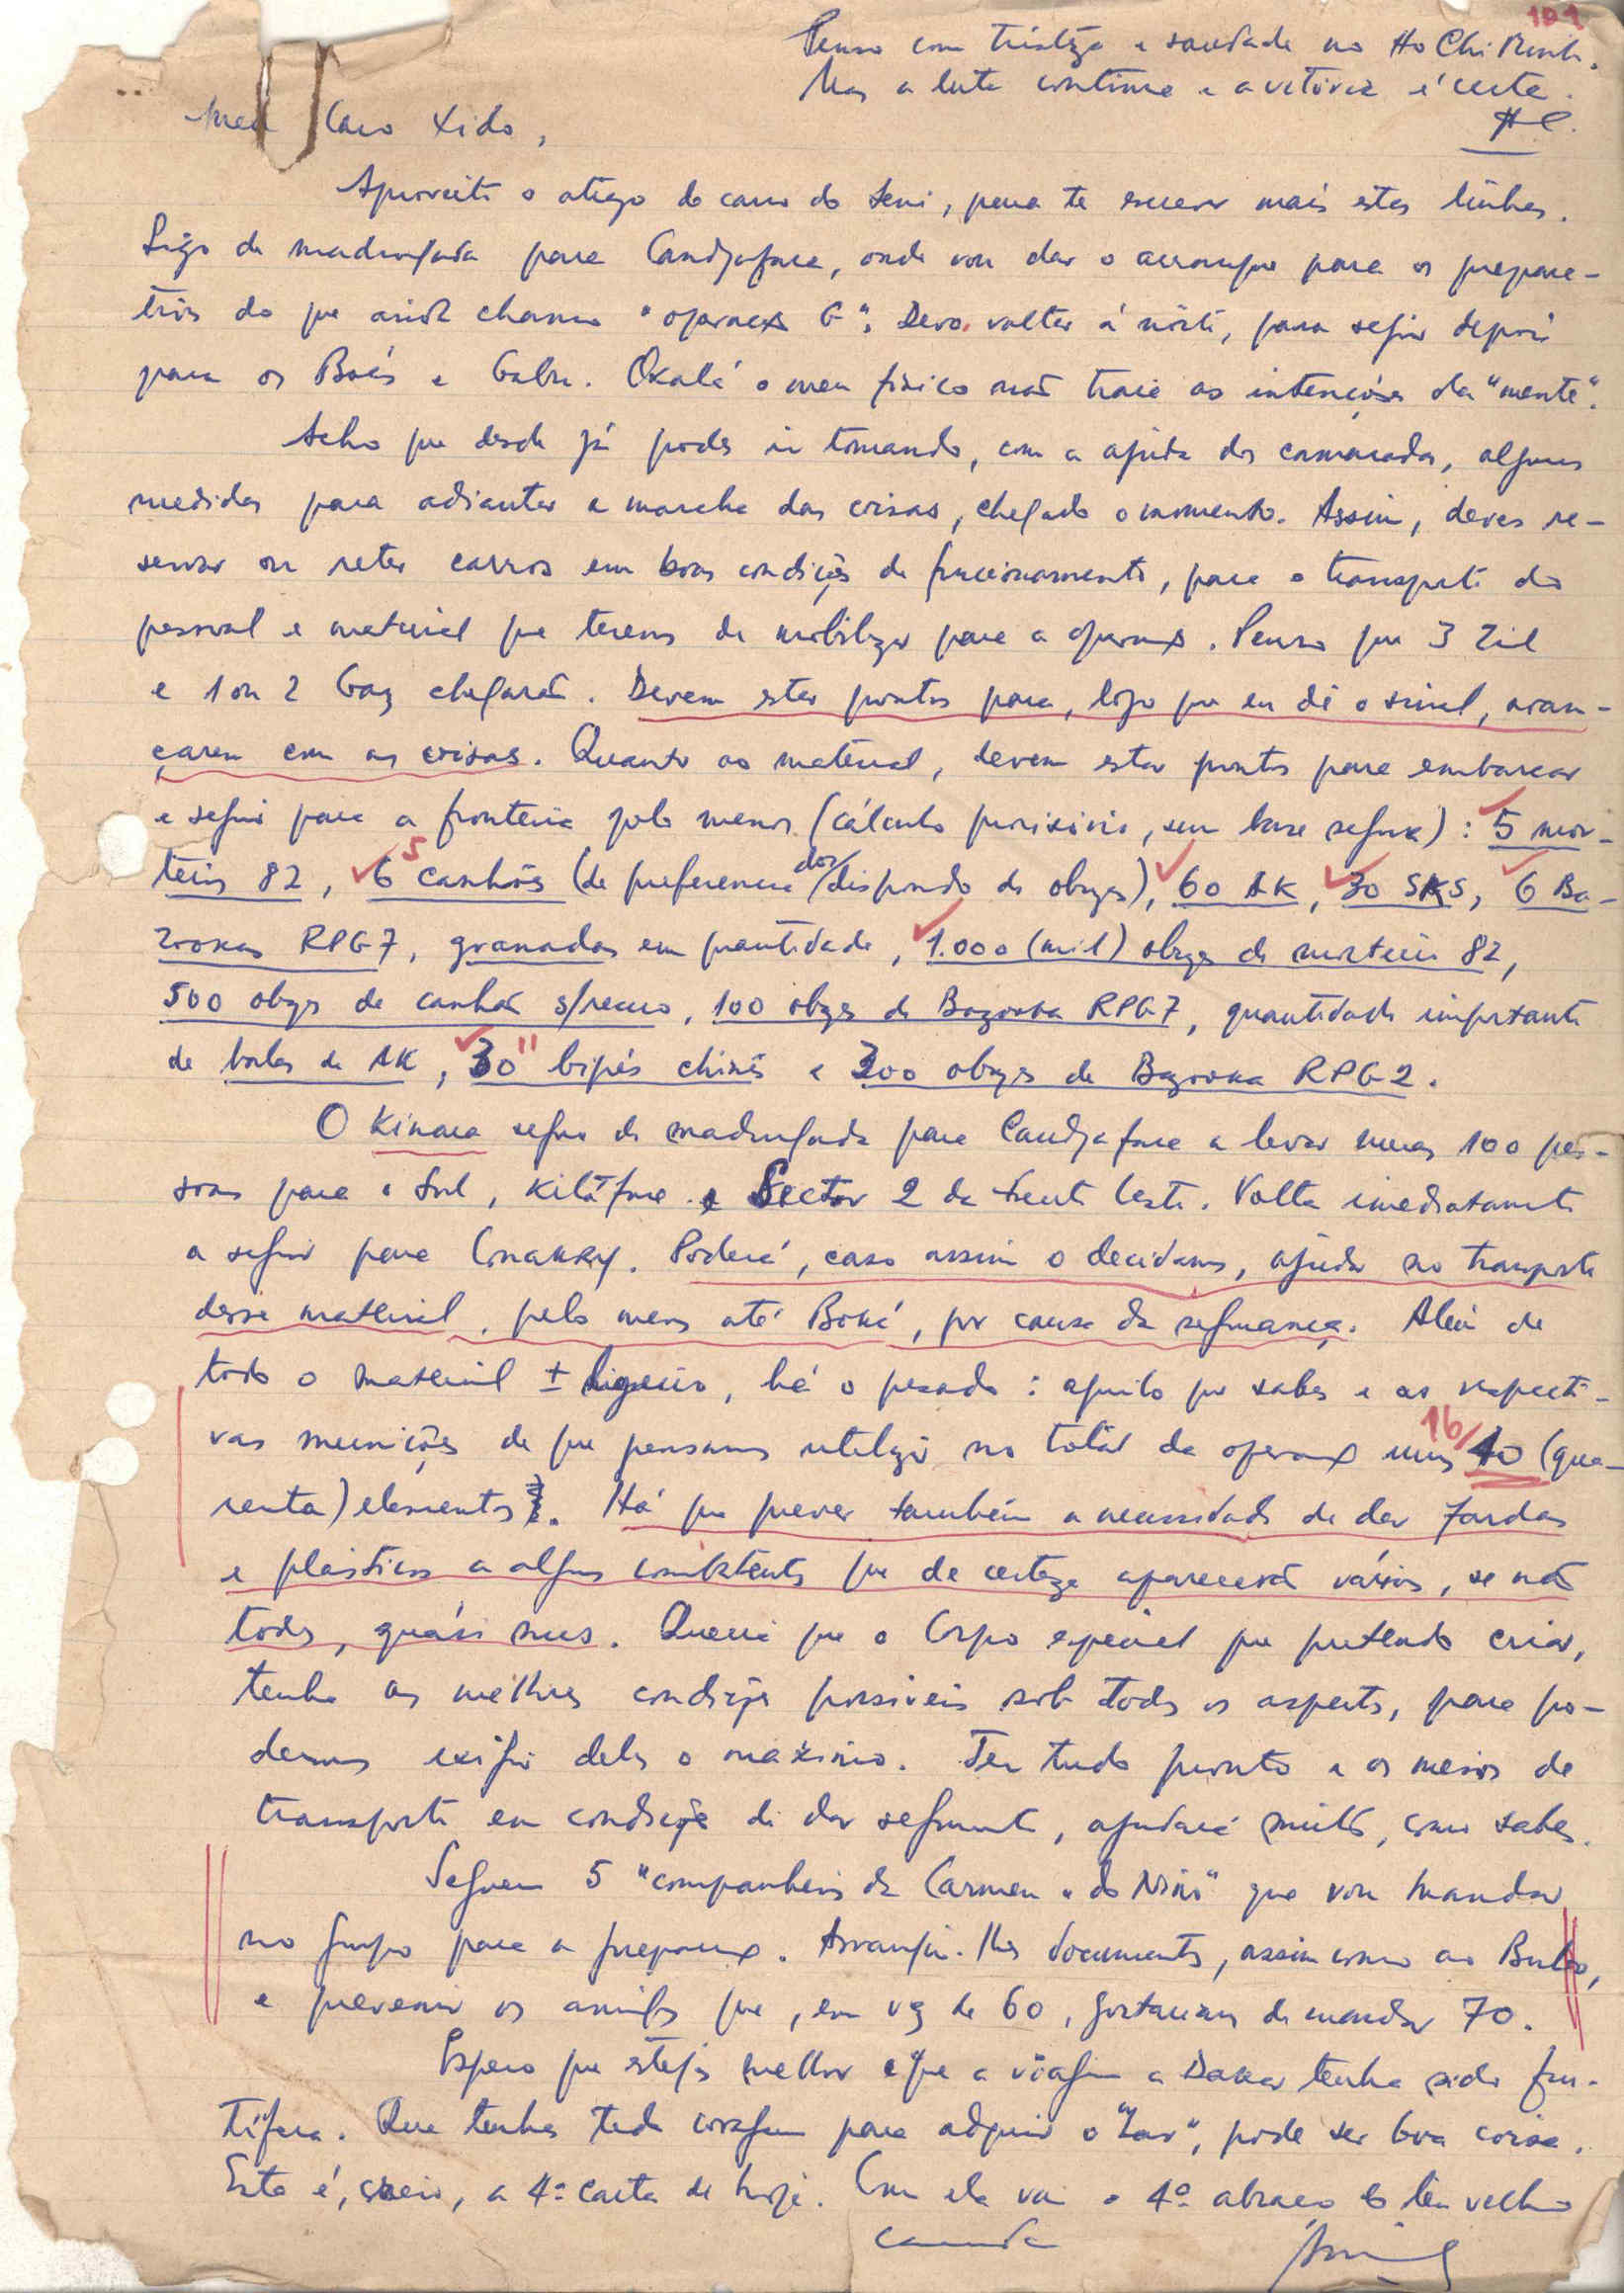 101
Penso com tristeza e saudade no Ho Chi Minh.
Mas a luta continua e a vitória é certa.
AC.
Meu Caro Xido,
Aproveito o atrazo do carro do Seni, para te escrever mais estas linhas.
Sigo de madrugada para Candjafara, onde vou dar o arranque para os prepara-
tivos do que ainda chamo "operação G". Devo voltar à noite, para seguir depois
para os Boés e Gabu. Oxalá o meu físico não traia as intenções da "mente".
Acho que desde já podes ir tomando, com a ajuda dos camaradas, algumas
medidas para adiantar a marcha das coisas, chegado o momento. Assim, deves re-
servar ou reter carros em boas condições de funcionamento, para o transporte do
pessoal e material que teremos de mobilizar para a operação. Penso que 3 Zil
e 1 ou 2 Gaz chegarão. Devem estar prontos para, logo que eu dê o sinal, avan-
çarem com as coisas. Quanto ao material, devem estar prontos para embarcar
e seguir para a fronteira pelo menos (cálculo provisório, sem base segura): 5 mor-
teiros 82, 6 5 canhões (de preferencia dos/dispondo de obuzes), 60 AK, 30 SKS, 6 Ba-
zookas RPG7, granadas em quantidade, 1.000 (mil) obuzes de morteiro 82,
500 obuzes de canhão s/recuo, 100 obuzes de Bazooka RPG7, quantidade importante
de balas de AK, 30 " bipés chinês e 300 obuzes de Bazooka RPG2.
O Kinara segue de madrugada para Candjafara a levar umas 100 pes-
soas para o Sul, Kitáfine e Sector 2 da Frente Leste. Volta imediatamente
a seguir para Conakry. Poderá, caso assim o decidamos, ajudar no transporte
desse material, pelo menos até Boké, por causa da segurança. Além de
todo o material ± ligeiro, há o pesado: aquilo que sabes e as respecti-
vas munições de que pensamos utilizar no total da operação uns 16/ 40 (qua-
renta) elementos. Há que prever também a necessidade de dar fardas
e plásticos a alguns combatentes que de certeza aparecerão vários, se não
todos, quási nus. Queria que o Corpo especial que pretendo criar,
tenha as melhores condições possíveis sob todos os aspectos, para po-
dermos exigir deles o máximo. Ter tudo pronto e os meios de
transporte em condições de dar seguimento, ajudará muito, como sabes.
Seguem 5 "companheiros da Carmen e do Nino" que vou mandar
no grupo para a preparação. Arranjar-lhes documentos, assim como ao Bulso,
e prevenir os amigos que, em vez de 60, gostariamos de mandar 70.
Espero que estejas melhor e que a viagem a Dakar tenha sido fru-
tífera. Que tenhas tido coragem para adquirir o "Zar", pode ser boa coisa.
Esta é, creio, a 4ª carta de hoje. Com ela vai o 4º abraço do teu velho
camarada